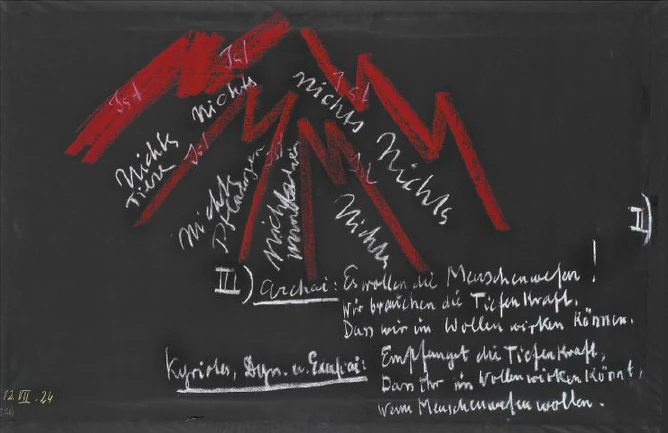 Ist
Ist
Nichts
Ist
Nichts
Nichts
Tiere
Ist
Nichts
Nichts
Pflanzen
Nichts
Ist
Nichts
II)
III) Archai: Es wollen die Menschenwesen!
Wir brauchen die Tiefenkraft,
Dass wir im Wollen wirken können.
Kyriotet, Dyn. u. Exusiai: Empfanget die Tiefenkraft,
Dass ihr im Wollen wirken könnt,
wenn Menschenwesen wollen.
12 VII. 24